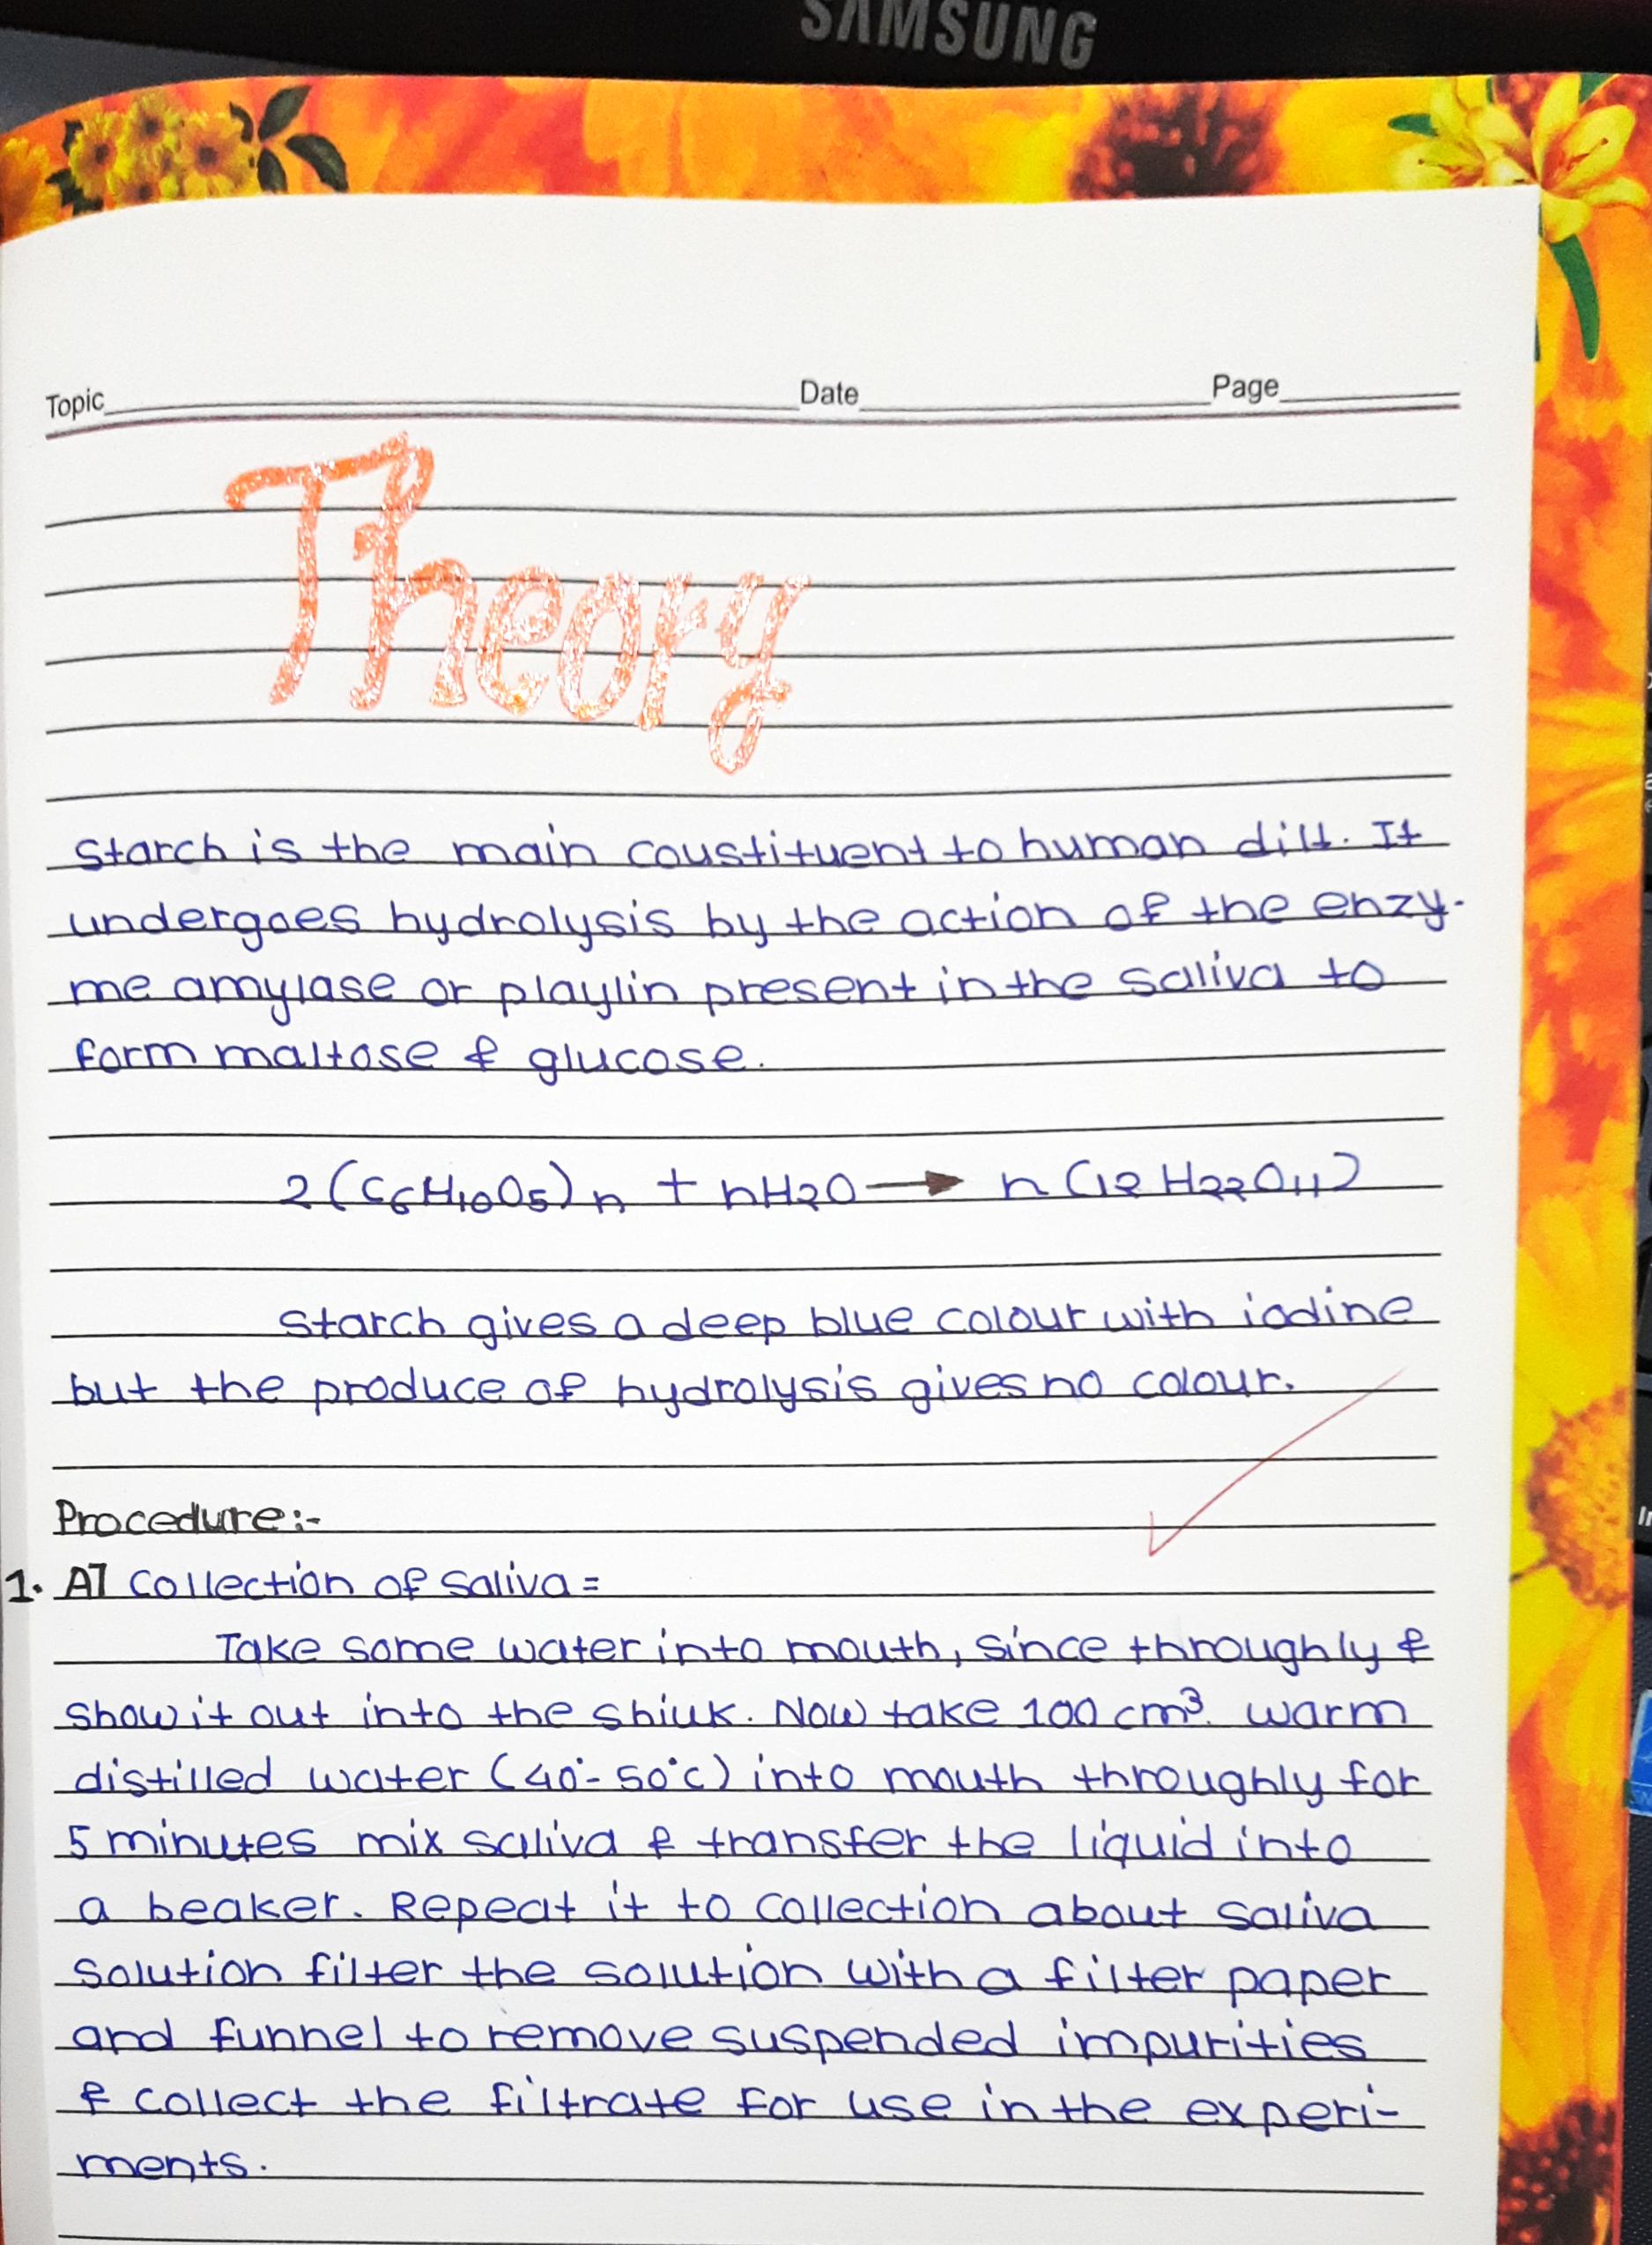 SAMSUNG
Topic Date Page
Theory
Starch is the main coustituent to human dilt. It
undergoes hydrolysis by the action of the enzy-
me amylase or playlin present in the saliva to
form maltose & glucose.
2(C6H10O5)n + nH2O → n(12H22O11)
Starch gives a deep blue colour with iodine
but the produce of hydrolysis gives no colour.
Procedure:-
1. A] Collection of saliva =
Take some water into mouth, since throughly &
show it out into the shiuk. Now take 100 cm³ warm
distilled water (40°-50°c) into mouth throughly for
5 minutes mix saliva & transfer the liquid into
a beaker. Repeat it to collection about saliva
solution filter the solution with a filter paper
and funnel to remove suspended impurities
& collect the filtrate for use in the experi-
ments.